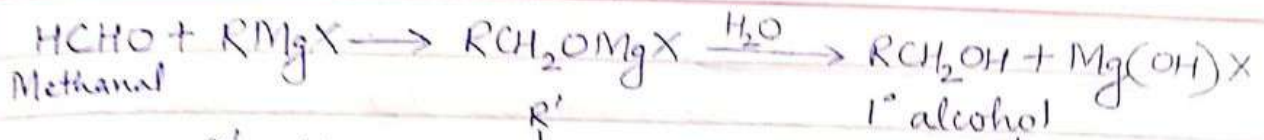 HCHO + RMgX → RCH₂OMgX —H₂O→ RCH₂OH + Mg(OH)X
Methanal 1° alcohol
R'